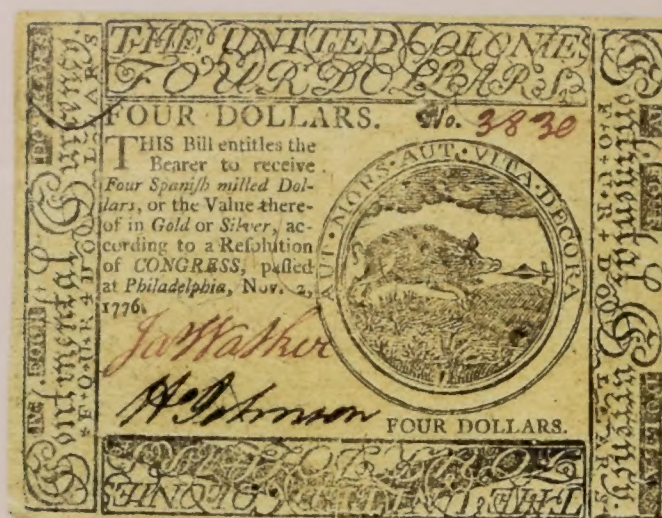 THE UNITED COLONIES
FOUR DOLLARS
FOUR DOLLARS. No. 3830
THIS Bill entitles the
Bearer to receive
Four Spaniſh milled Dol-
lars, or the Value there-
of in Gold or Silver, ac-
cording to a Reſolution
of CONGRESS, paſſed
at Philadelphia, Nov. 2,
1776.
AUT·MORS·AUT·VITA·DECORA
Ja Walker
H Johnson
FOUR DOLLARS.
Continental Currency
F·O·U·R·D·O·L·L·A·R·S
Continental Currency
F·O·U·R·D·O·L·L·A·R·S
THE UNITED COLONIES